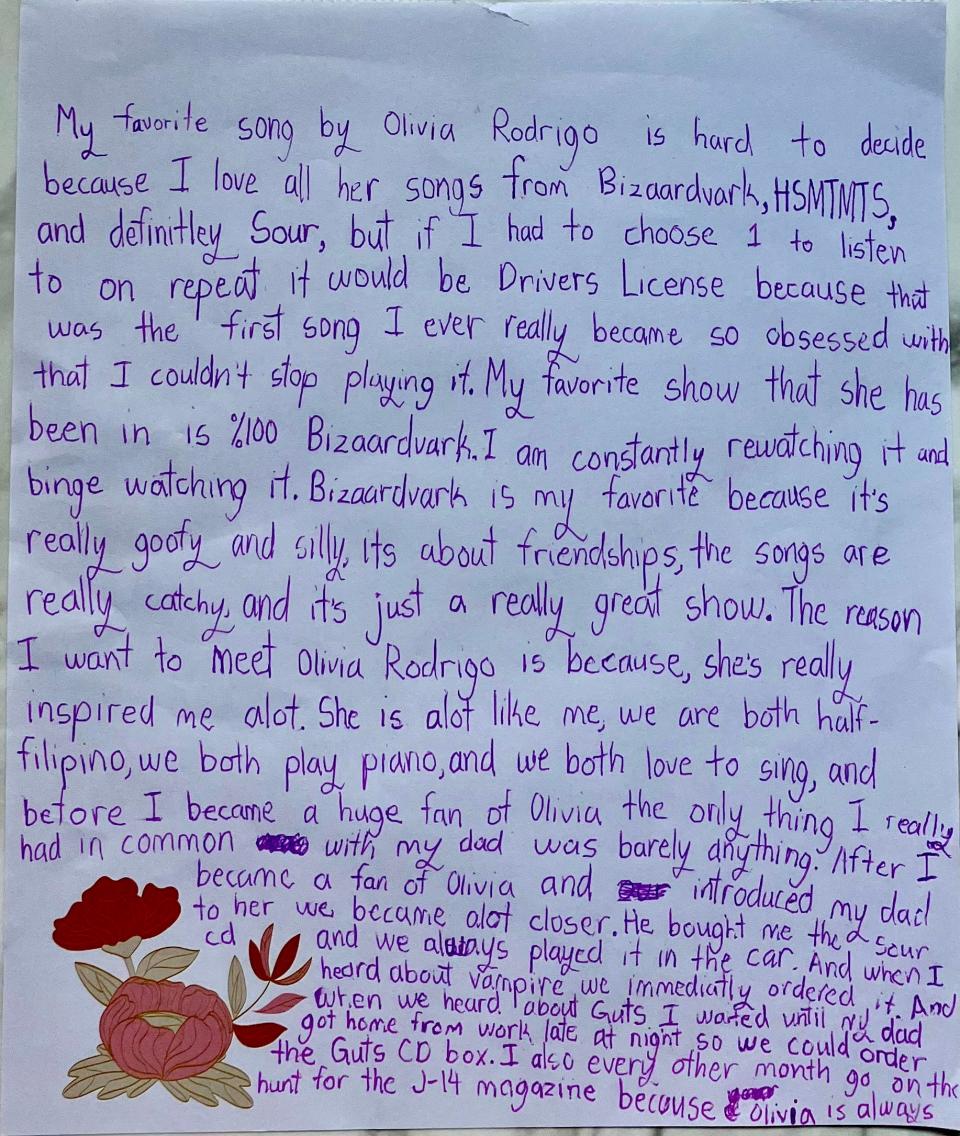 My favorite song by Olivia Rodrigo is hard to decide
because I love all her songs from Bizaardvark, HSMTMTS,
and definitley Sour, but if I had to choose 1 to listen
to on repeat it would be Drivers License because that
was the first song I ever really became so obsessed with
that I couldn't stop playing it. My favorite show that she has
been in is %100 Bizaardvark. I am constantly rewatching it and
binge watching it. Bizaardvark is my favorite because it's
really goofy and silly, its about friendships, the songs are
really catchy, and it's just a really great show. The reason
I want to meet Olivia Rodrigo is because, she's really
inspired me alot. She is alot like me, we are both half-
filipino, we both play piano, and we both love to sing, and
before I became a huge fan of Olivia the only thing I really
had in common with my dad was barely anything. After I
became a fan of Olivia and introduced my dad
to her we became alot closer. He bought me the Sour
cd and we always played it in the car. And when I
heard about vampire we immediatly ordered it. And
when we heard about Guts I waited until my dad
got home from work late at night so we could order
the Guts CD box. I also every other month go on the
hunt for the J-14 magazine because Olivia is always